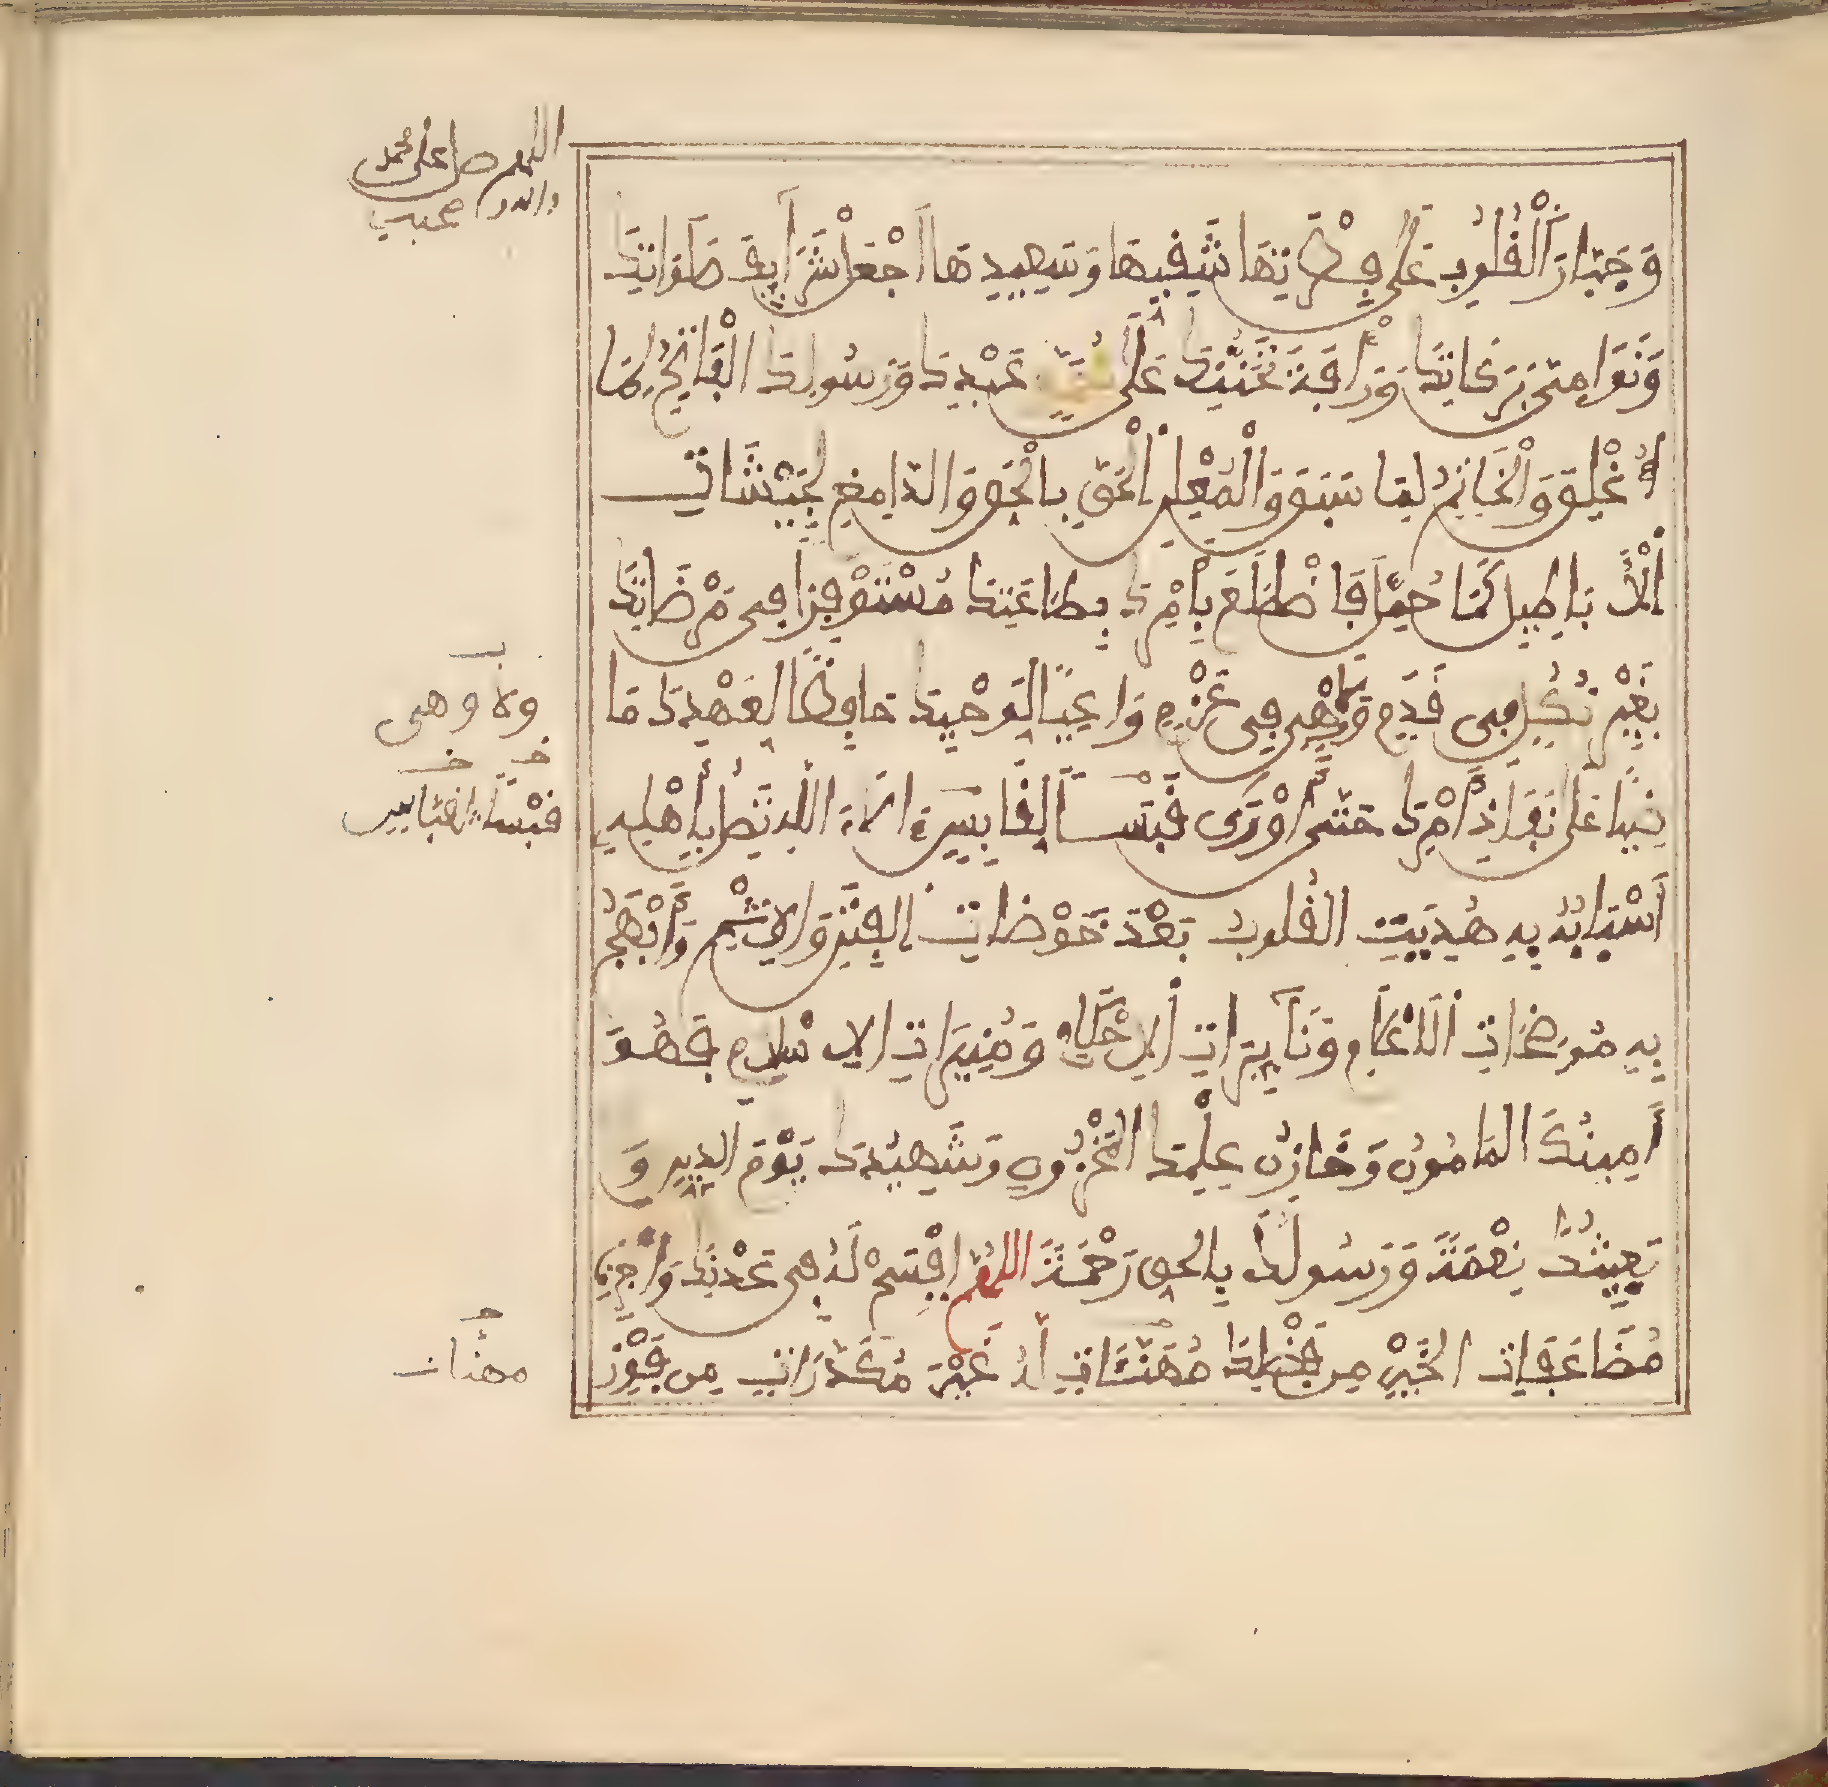 اللهم صل على محمد
وَجَبَّارَ الْقُلُوبِ عَلَى فِطْرَتِهَا شَقِيِّهَا وَسَعِيدِهَا اجْعَلْ شَرَآئِفَ صَلَوَاتِكَ
وَنَوَامِيَ بَرَكَاتِكَ وَرَأْفَةَ تَحَنُّنِكَ عَلَى عَبْدِكَ وَرَسُولِكَ الْفَاتِحِ لِمَا
أُغْلِقَ وَالْخَاتِمِ لِمَا سَبَقَ وَالْمُعْلِنِ الْحَقِّ بِالْحَقِّ وَالدَّامِغِ لِجَيْشَاتِ
الْأَبَاطِيلِ كَمَا حُمِّلَ فَاضْطَلَعَ بِأَمْرِكَ بِطَاعَتِكَ مُسْتَوْفِزًا فِي مَرْضَاتِكَ
بِغَيْرِ نُكُلٍ فِي قَدَمٍ وَلَا وَهْيٍ فِي عَزْمٍ وَاعِيًا لِوَحْيِكَ حَافِظًا لِعَهْدِكَ مَا
ولا وهي
ضِيًا عَلَى نَفَاذِ أَمْرِكَ حَتَّى أَوْرَى قَبَسًا لِقَابِسٍ ءَالَاءُ اللهِ تَصِلُ بِأَهْلِهِ
قبسا لقابس
أَسْبَابُهُ بِهِ هُدِيَتِ الْقُلُوبُ بَعْدَ خَوْضَاتِ الْفِتَنِ وَالْإِثْمِ وَأَبْهَجَ
بِهِ مُوضِحَاتِ الْأَعْلَامِ وَنَآئِرَاتِ الْأَحْكَامِ وَمُنِيرَاتِ الْإِسْلَامِ فَهُوَ
أَمِينُكَ الْمَامُونُ وَخَازِنُ عِلْمِكَ الْمَخْزُونِ وَشَهِيدُكَ يَوْمَ الدِّينِ وَ
بَعِيثُكَ نِعْمَةً وَرَسُولُكَ بِالْحَقِّ رَحْمَةً اللهم افْسَحْ لَهُ فِي عَدْنِكَ وَاجْزِهِ
مُضَاعَفَاتِ الْخَيْرِ مِن فَضْلِكَ مُهَنَّئَاتٍ لَهُ غَيْرَ مُكَدَّرَاتٍ مِن فَوْزِ
مهنات